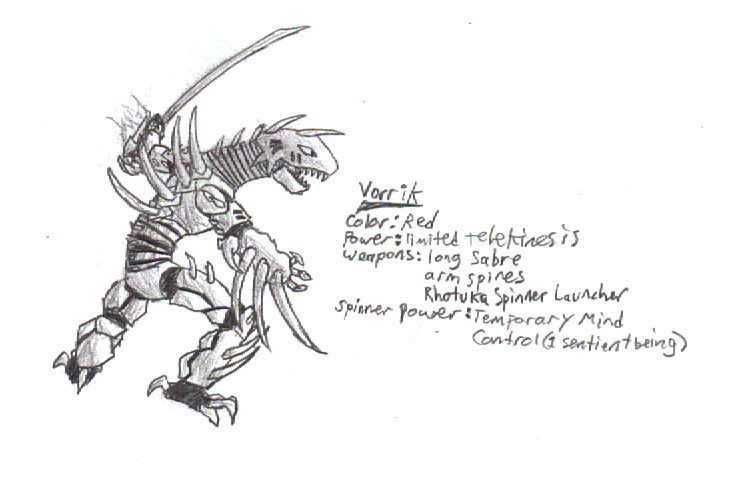 Vorrik
Color: Red
Power: limited telekinesis
Weapons: long Sabre
arm spines
Rhotuka Spinner Launcher
Spinner power: Temporary Mind
Control (1 sentient being)